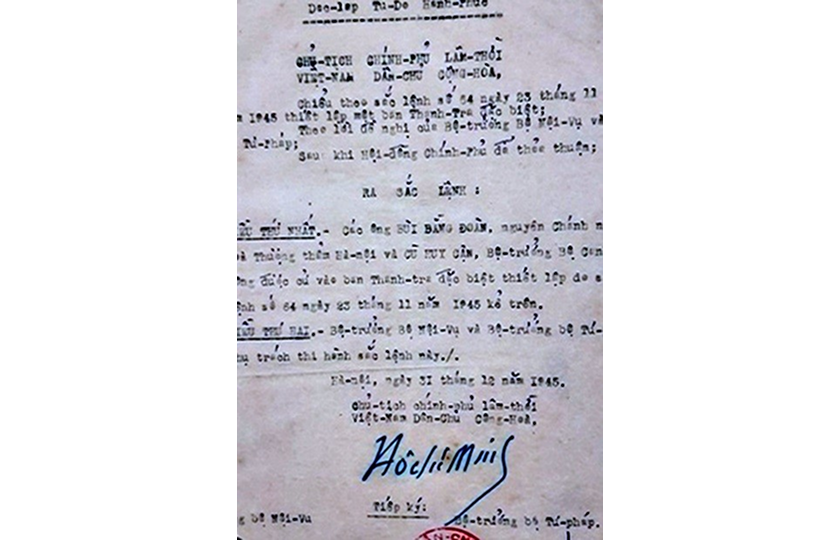 Độc-lập Tự-Do Hạnh-Phúc
CHỦ-TỊCH CHÍNH-PHỦ LÂM-THỜI
VIỆT-NAM DÂN-CHỦ CỘNG-HOÀ,
Chiểu theo sắc lệnh số 64 ngày 23 tháng 11
m 1945 thiết lập một ban Thanh-Tra đặc biệt;
Theo lời đề nghị của Bộ-trưởng Bộ Nội-Vụ và
Tư-Pháp;
Sau khi Hội-đồng Chính-Phủ đã thỏa thuận;
RA SẮC LỆNH :
ĐIỀU THỨ NHẤT.- Các ông BÙI BẰNG ĐOÀN, nguyên Chánh n
oà Thượng thẩm Hà-nội và CÙ HUY CẬN, Bộ-trưởng Bộ Can
ông được cử vào ban Thanh-tra đặc biệt thiết lập do s
ệnh số 64 ngày 23 tháng 11 năm 1945 kể trên.
IỀU THỨ HAI.- Bộ-trưởng Bộ Nội-Vụ và Bộ-trưởng bộ Tư-
hụ trách thi hành sắc lệnh này./.
Hà-nội, ngày 31 tháng 12 năm 1945.
Chủ-tịch chính-phủ lâm-thời
Việt-Nam Dân-Chủ Cộng-Hoà,
Hồ Chí Minh
Tiếp ký:
g bộ Nội-Vụ Bộ-trưởng bộ Tư-pháp.